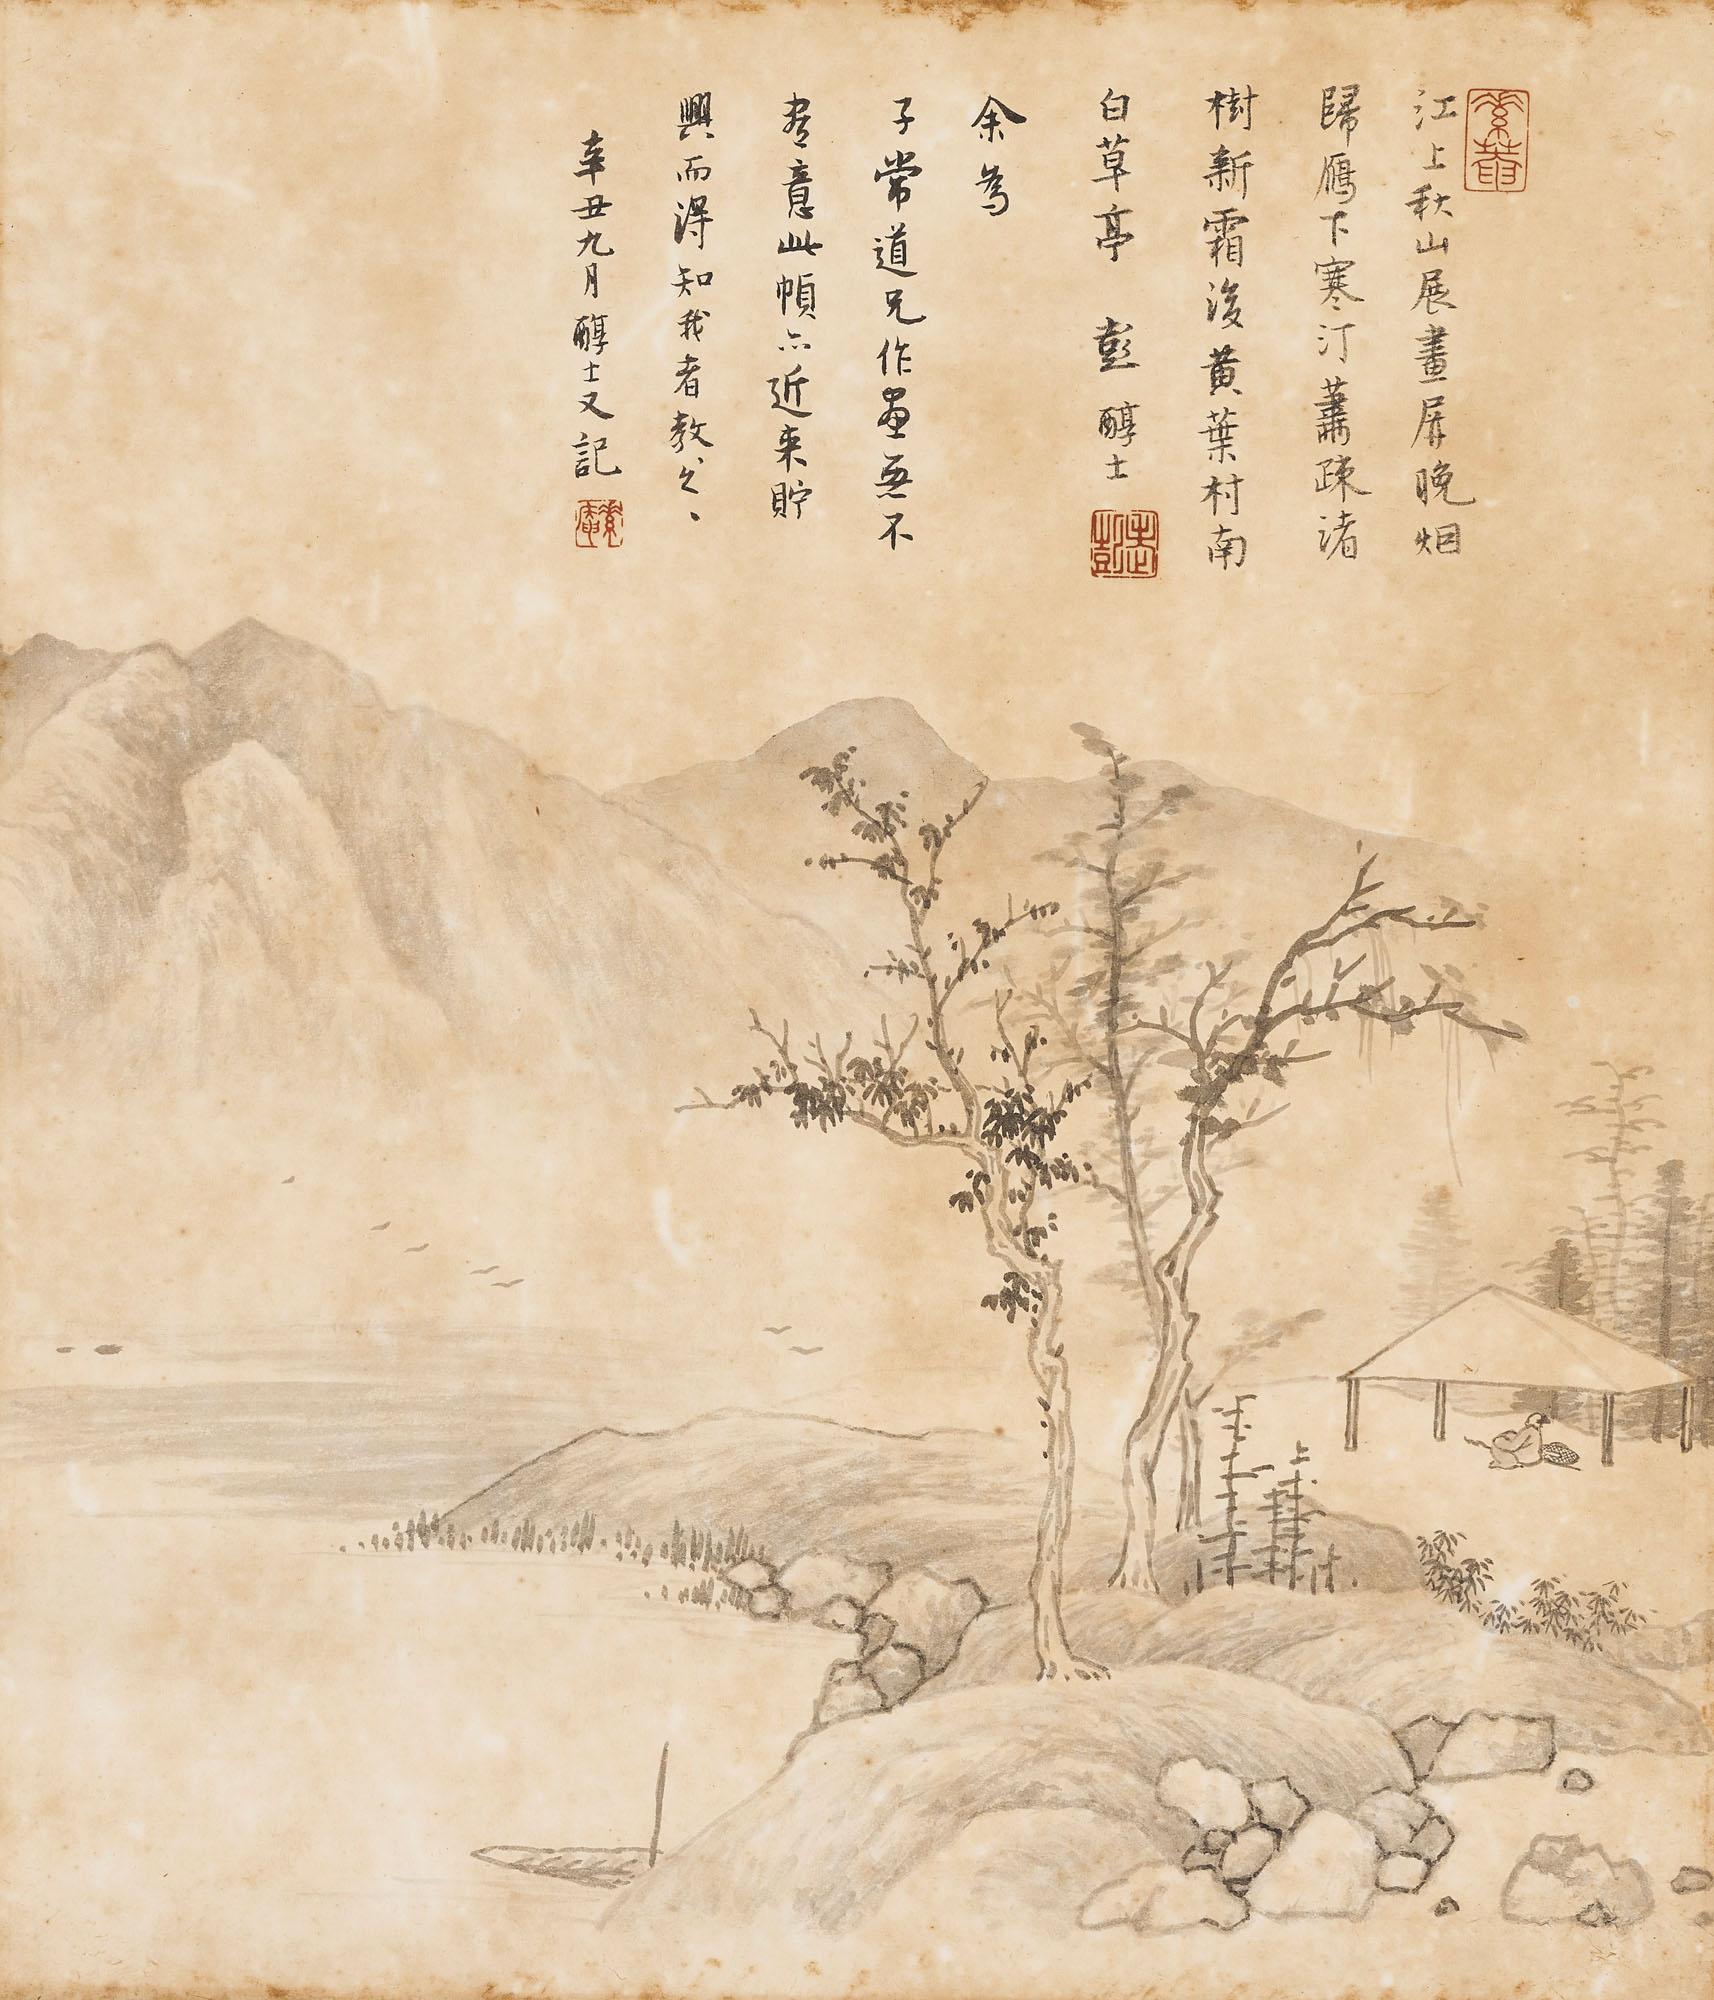 江上秋山展畫屏晚烟
歸鴈下寒汀蕭疎渚
樹新霜後黃葉村南
白草亭 彭醇士
余為
子常道兄作画無不
盡意此幀亦近來貯
興而得知我者教之
辛丑九月醇士又記